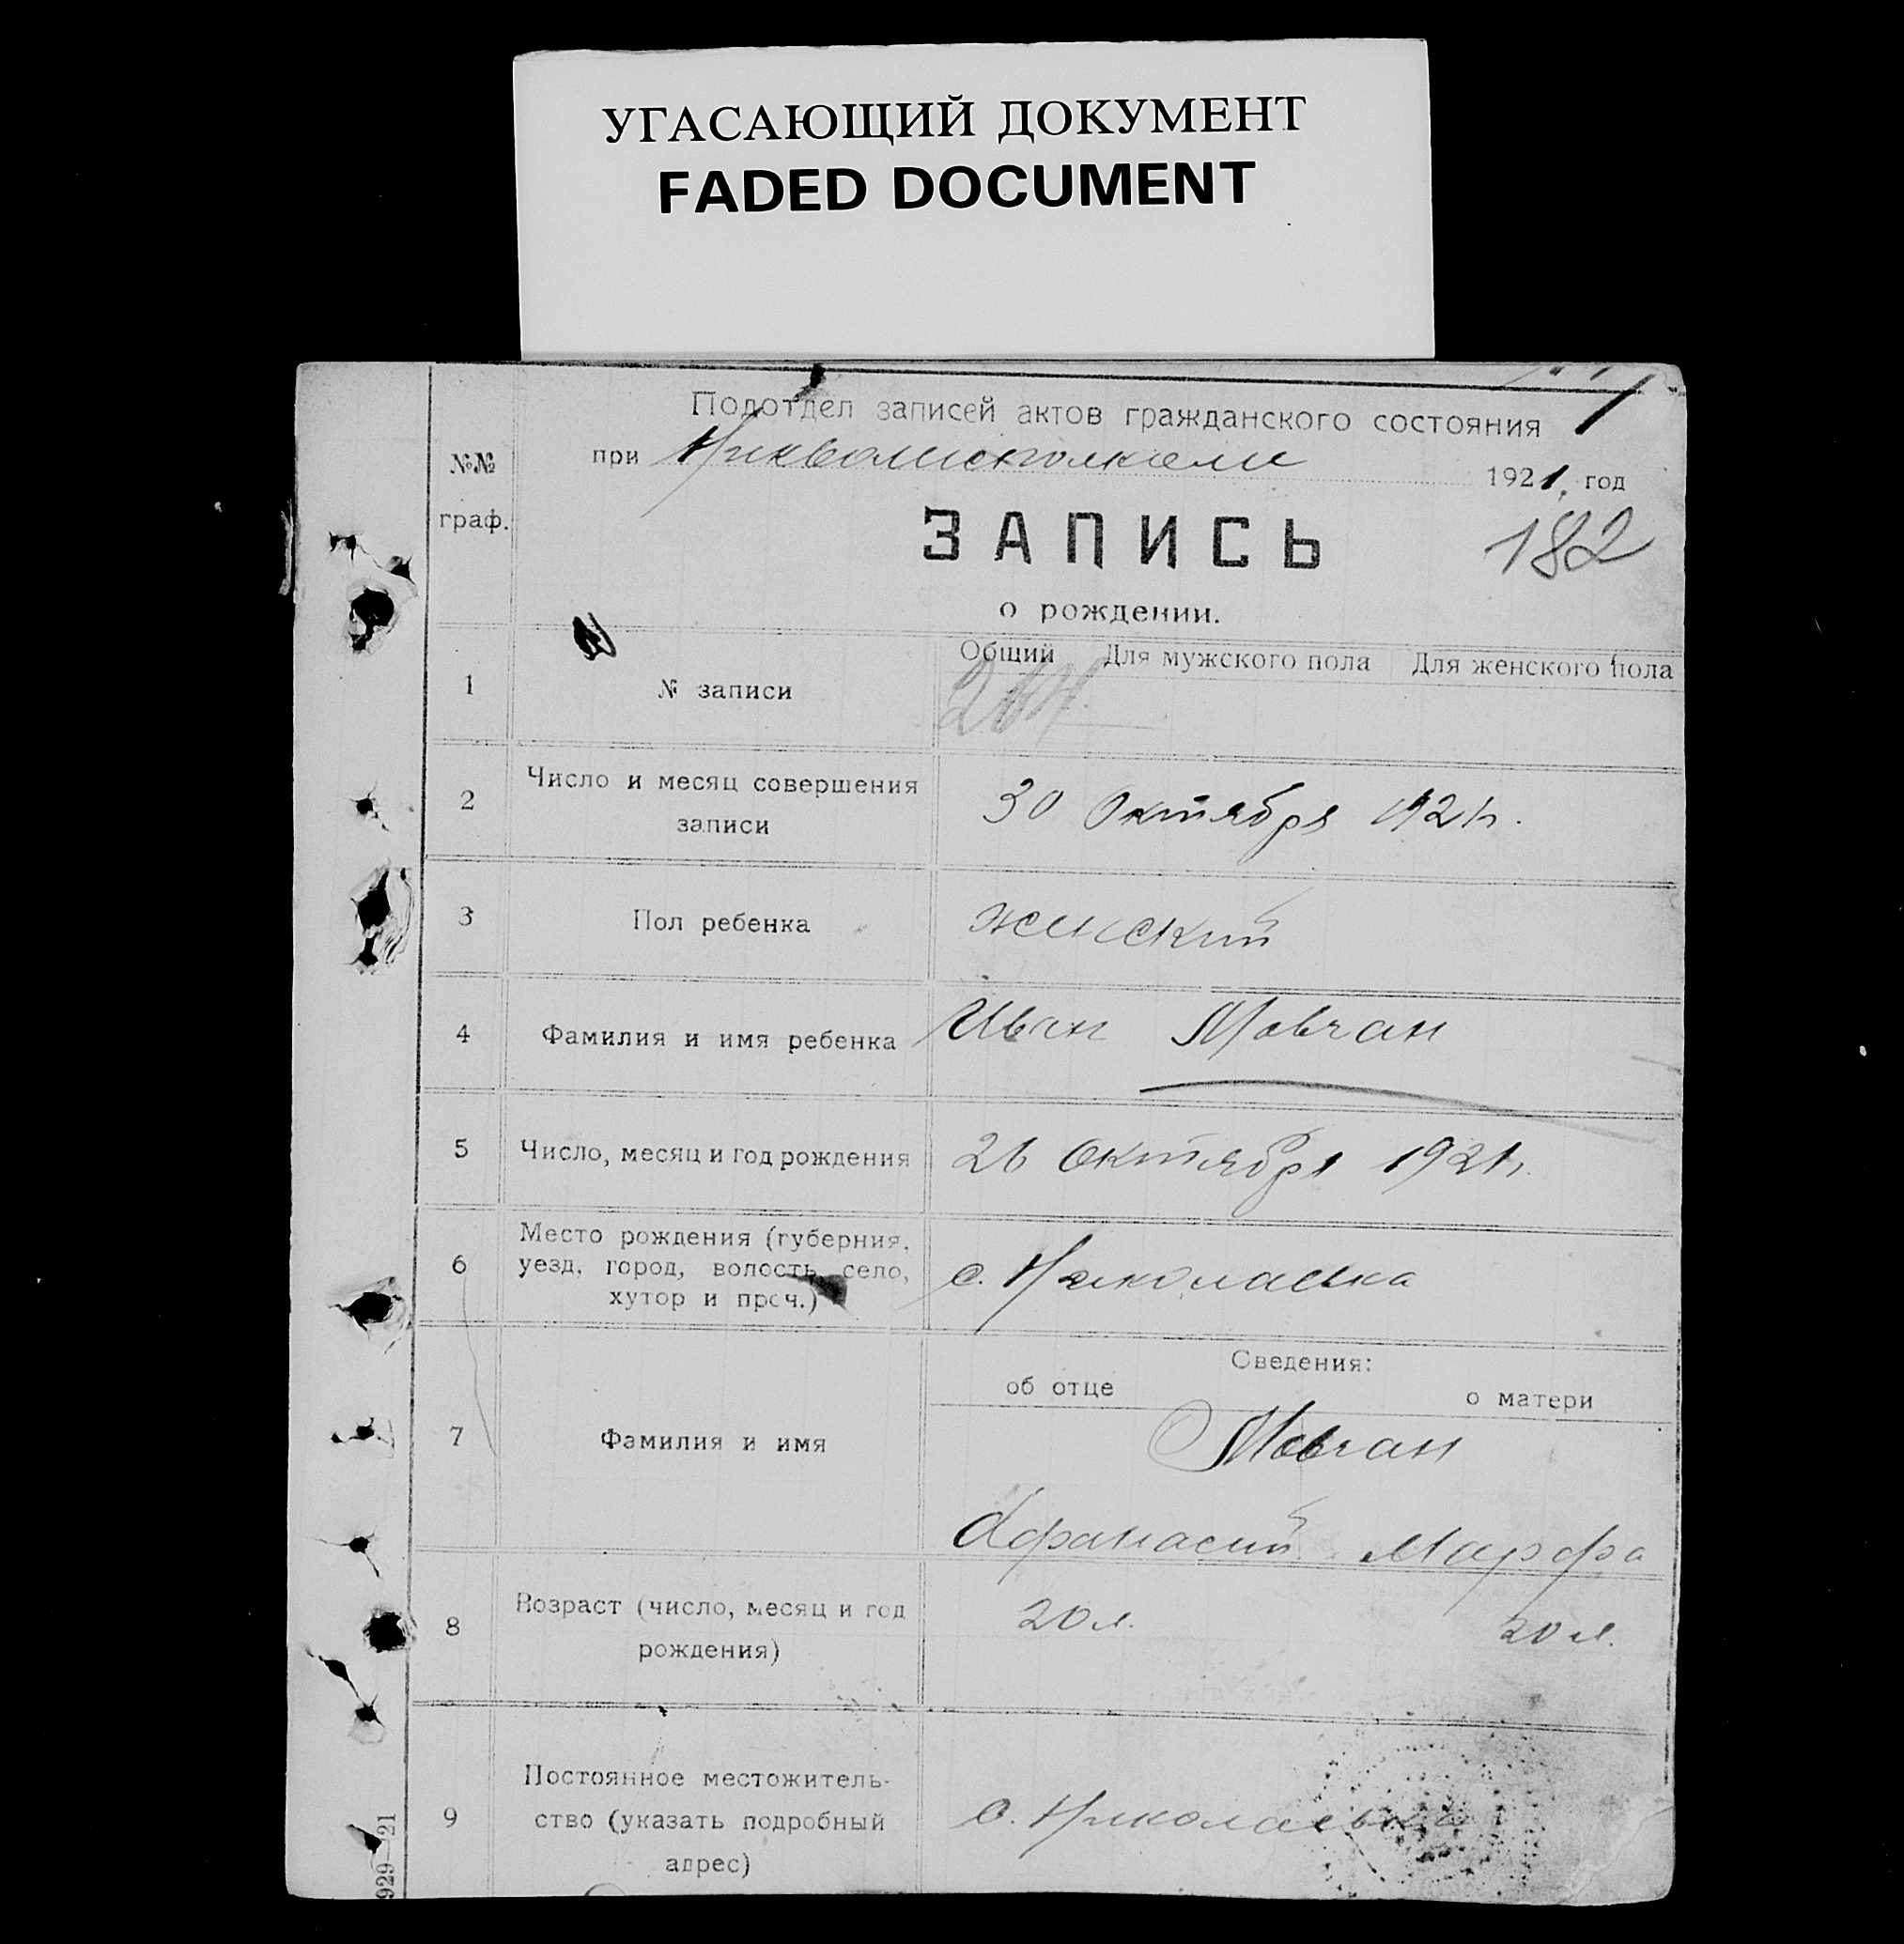 УГАСАЮЩИЙ ДОКУМЕНТ
FADED DOCUMENT
Подотдел записей актов гражданского состояния
при Никволисполкоме 1921. год
№№
граф.
ЗАПИСЬ
182
о рождении.
Общий Для мужского пола Для женского пола
1 № записи
2 Число и месяц совершения
записи
30 Октября 1921 г.
3 Пол ребенка женский
4 Фамилия и имя ребенка Иван Мовчан
5 Число, месяц и год рождения 26 Октября 1921 г.
6 Место рождения (губерния,
уезд, город, волость, село,
хутор и проч.)
с. Николаевка
Сведения:
об отце о матери
7 Фамилия и имя Мовчан
Афанасий Марфа
8 Возраст (число, месяц и год
рождения)
20 л. 20 л.
9 Постоянное местожитель-
ство (указать подробный
адрес)
с. Николаевка
929—21